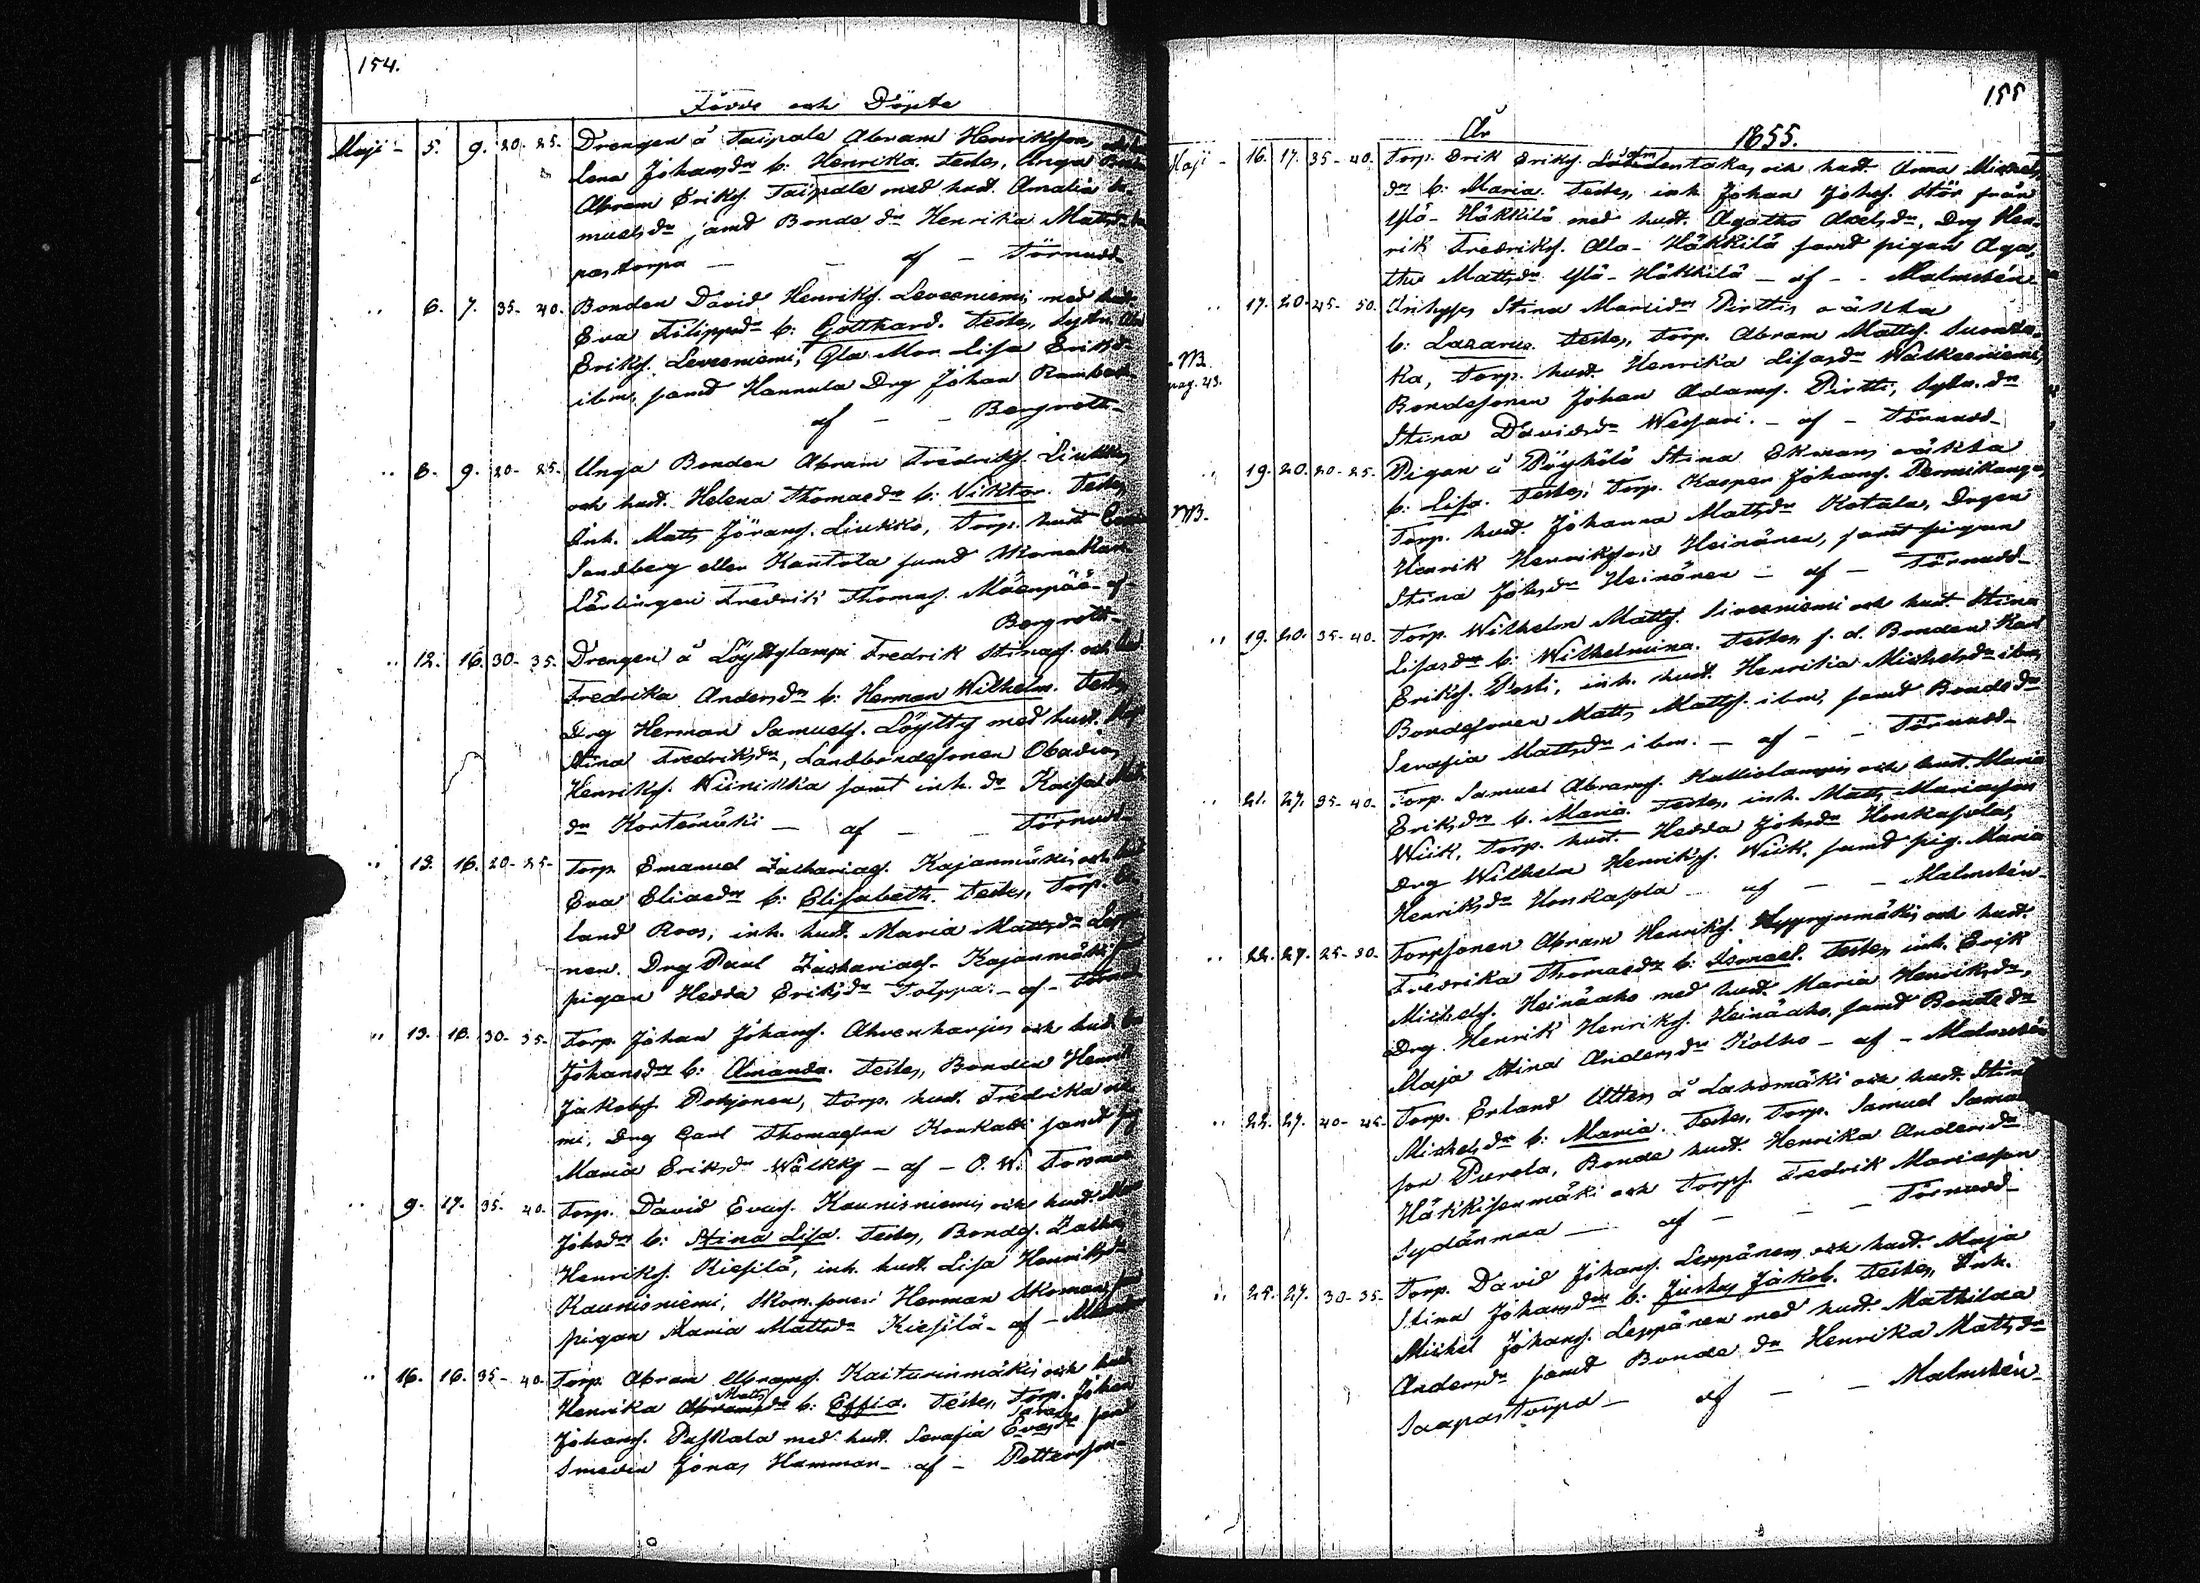 154.
Födde och Döpte
Maji - 5. 9. 20- 25. Drengen å Taipale Abram Henriksson, och
Lena Johansdr b: Henrika. Testes, Unga
Abram Eriks. Taipale med hust. Amalia
muelsdr samt Bonde dr Henrika Mattsdr
pastorpa - - af - Törnudd-
" 6. 7. 35- 40. Bonden David Henriks. Levesniemi, med hust.
Eva Filippsdr b: Gotthard. Testes, Sytn.
Eriks. Levesniemi, Gla Mor Lisa Eriksdr
ibm, samt Hannula Drg Johan
af - - Bergroth-
" 8. 9. 20- 25. Unga Bonden Abram Fredriks. Liukko,
och hust. Helena Thomasdr b: Viktor. Testes,
Inh. Matts Jörans. Liukko, Torp. hust.
Sandberg eller Kantola samt Skomakare
Lärlingen Fredrik Thomas. Mäenpää - af -
Bergroth-
" 12. 16. 30- 35. Drengen å Löyttylampi Fredrik Stinas. och
Fredrika Andersdr b: Herman Wilhelm. Testes
Drg Herman Samuels. Löytty med hust.
Stina Fredriksdr, Landbondesonen Obadias
Henriks. Wiinikka samt inh. dr Kaisa
dr Kortemäki - af - - Törnudd-
" 13. 16. 20- 25- Torp. Emanuel Zachariaes. Kajanmäki, och hust
Eva Eliaedr b: Elisabeth. Testes, Torp.
land Roos, inh. hust. Maria Mattsdr
nen. Drg Paul Zachariaes. Kajanmäki
pigan Hedda Eriksdr Tolppa. - af -
" 13. 16. 30- 35- Torp. Johan Johans. Ahvenharju, och hust.
Johansdr b: Amanda. Testes, Bonden Henrik
Jakobs. Pohjonen, Torp. hust. Fredrika
mi, Drg Carl Thomasson Konkatti samt
Maria Eriksdr Wälkky - af - O. W.
" 9. 17. 35- 40- Torp. David Evas. Kaunisniemi, och hust.
Johsdr b: Stina Lisa. Testes, Bondes.
Henriks. Kiesilä, inh. hust. Lisa Henriksdr
Kaunisniemi, Skom. sonen Herman Skoman,
pigan Maria Mattsdr Kiesilä - af -
" 16. 16. 35- 40- Torp. Abram Abrams. Kaiturinmäki, och hust
Matts
Henrika Abramsdr b: Effia. Testes, Torp. Johan
Johans. Puskala med hust. Serafia Evasdr
Smeden Jonas Hamman - af - Pettersson-
155
År 1855.
Maji - 16. 17. 35- 40. Torp. Erik Eriks. och hust. Anna Michels
dr b: Maria. Testes, inh. Johan Johs. Stör från
Ylä- Häkkilä med hust. Agatha Axelsdr, Drg Hen-
rik Fredriks. Ala- Häkkilä samt pigan Aga-
tha Mattsdr Ylä- Häkkilä - af - - Malmstén
" 17. 20. 45- 50. Inhyses Stina Mariidr Pirttis oäkta
b: Lazarus. Testes, Torp. Abram Matts.
NB. pag. 43.
ka, Torp. hust. Henrika Lisasdr Walkeeniemi,
Bondesonen Johan Adams. Pirtti, Sytn. dr
Stina Davidsdr Wesari. - af - Törnudd-
" 19. 20. 20- 25. Pigan å Pöyhölä Stina Ekmans oäkta
b: Lisa. Testes, Torp. Kasper Johans. Permikangas
NB.
Torp. hust. Johanna Mattsdr Kotala, Drgen
Henrik Henriksson Heinänen, samt pigan
Stina Johsdr Heinänen - af - Törnudd-
" 19. 20. 35- 40- Torp. Wilhelm Matts. Siveeniemi och hust. Stina
Lisasdr b: Wilhelmina. Testes, f. d. Bonden Karl
Eriks. Posti, inh. hust. Henrika Michelsdr ibm,
Bondesonen Matts Matts. ibm, samt Bonde dr
Serafia Mattsdr ibm. - af - - Törnudd-
" 21. 27. 35- 40- Torp. Samuel Abrams. Kalliolampi, och hust. Maria
Eriksdr b. Maria. Testes, inh. Matts Mariasson
Wiik, Torp. hust. Hedda Johsdr Honkasola,
Drg Wilhelm Henriks. Wiik, samt pig. Maria
Henriksdr Honkasola - af - - Malmstén-
" 22. 27. 25- 30- Torpsonen Abram Henriks. Hyyrynmäki, och hust.
Fredrika Thomasdr b: Ismael. Testes, inh. Erik
Michels. Heinäaho med hust. Maria Henriksdr,
Drg. Henrik Henriks. Heinäaho, samt Bonde dr
Maja Stina Andersdr Kolho - af - Malmstén
" 22. 27. 40- 45- Torp. Erland Utter, å Lahomäki och hust. Stina
Michelsdr b: Maria. Testes, Torp. Samuel
son Purola, Bonde hust. Henrika Andersdr
Häkkisenmäki och Torps. Fredrik Mariasson
Sydänmaa - af - - - Törnudd-
" 25. 27. 30- 35- Torp. David Johans. Leppänen, och hust. Maja
Stina Johansdr b: Justus Jakob. Testes, Inh.
Michel Johans. Leppänen med hust. Mathilda
Andersdr samt Bonde dr Henrika Mattsdr
Saapastorpa - af - - Malmstén-